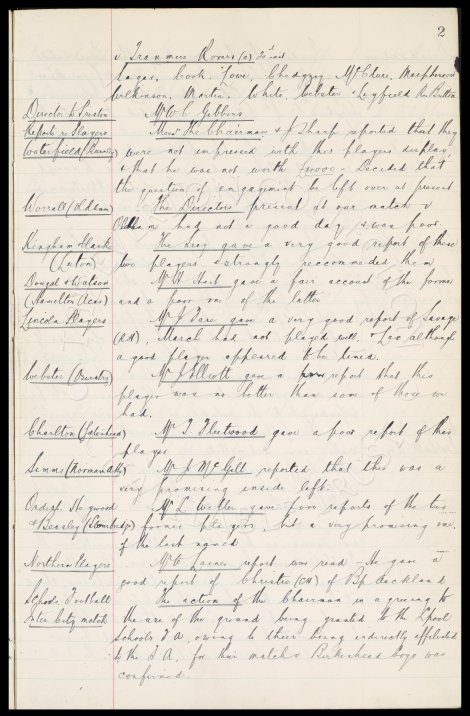 2
v Tranmere Rovers (a)
Sagar, Cook, Jones, Chedgzoy, McClure, Macpherson
Wilkinson, Martin, White, Webster & Leyfield
Director to Preston Mr W. C. Gibbins
Reports re Players Messrs The Chairman & J Sharp reported that they
Waterfield (Burnley) were not impressed with this players display,
& that he was not worth £6000. Decided that
the question of engagement be left over at present
Worrall (Oldham) The Directors present at our match v
Oldham had not a good day & was poor
Kingham & Clark The Secy gave a very good report of these
(Luton) two players & strongly recommended them
Dougal & Watson Mr H Hart gave a fair account of the former
(Hamilton Acas) and a poor one of the latter
Lincoln Players Mr J Fare gave a very good report of Savage
(RH), March had not played well, & Lax although
a good player appeared to be lame.
Webster (Buxton) Mr J Elliott gave a report that this
player was no better than some of those we
had.
Charlton (Gateshead) Mr T Fleetwood gave a poor report of this
player
Simms (Norman Ath) Mr J McGill reported that this was a
very promising inside left.
Ordish, Haywood Mr L Weller gave poor reports of the two
& Beasley (Stourbridge) former players, but a very promising one
of the last named
Northern Players Mr report was read - He gave a
good report of Christie (CH) of Bp Auckland
School Football The action of the Chairman in agreeing to
Inter City match the use of the ground being granted to the L'pool
Schools F A, owing to their being indirectly affiliated
to the F A, for their match v Birkenhead Boys was
confirmed.